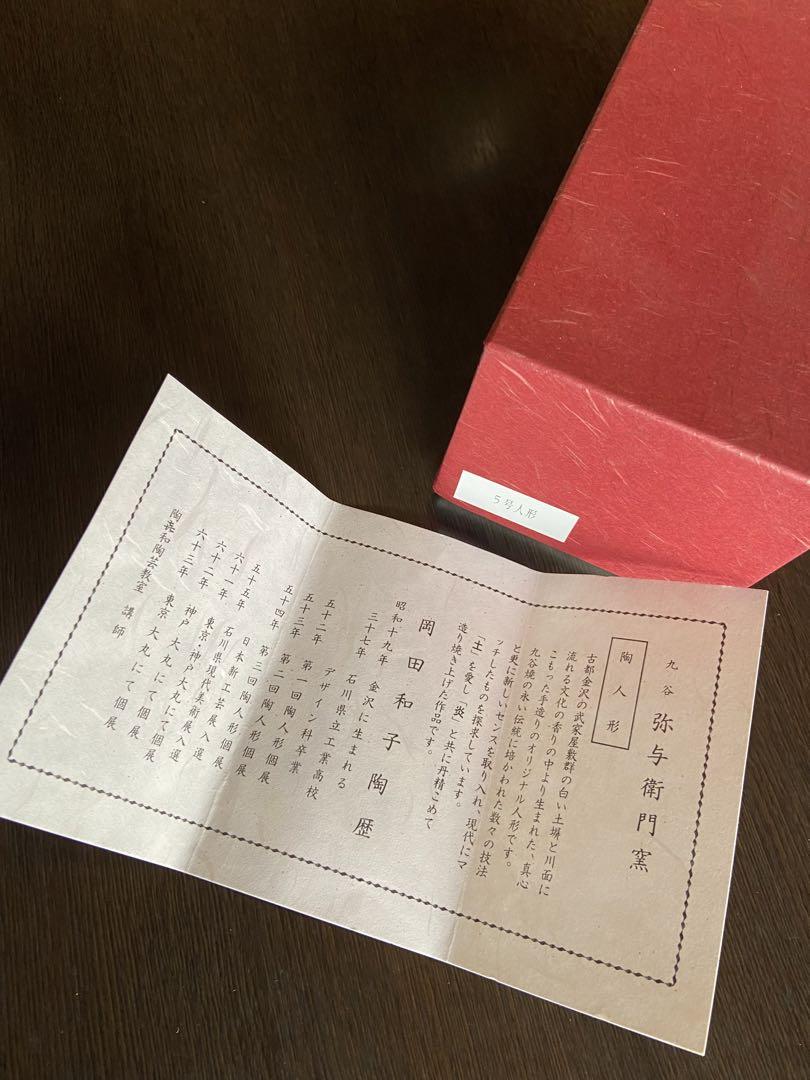 5号人形
九谷 弥与衛門窯
陶人形
古都金沢の武家屋敷群の白い土塀と川面に
流れる文化の香りの中より生まれた、真心
こもった手造りのオリジナル人形です。
九谷焼の永い伝統に培かわれた数々の技法
と更に新しいセンスを取り入れ、現代にマ
ッチしたものを探求しています。
「土」を愛し「炎」と共に丹精こめて
造り焼き上げた作品です。
岡田和子陶歴
昭和十九年 金沢に生まれる
三十七年 石川県立工業高校
デザイン科卒業
五十二年 第一回陶人形個展
五十三年 第二回陶人形個展
五十四年 第三回陶人形個展
五十五年 日本新工芸展入選
六十一年 石川県現代美術展入選
六十二年 東京・神戸大丸にて個展
六十三年 神戸大丸にて個展
東京大丸にて個展
陶㐂和陶芸教室 講師